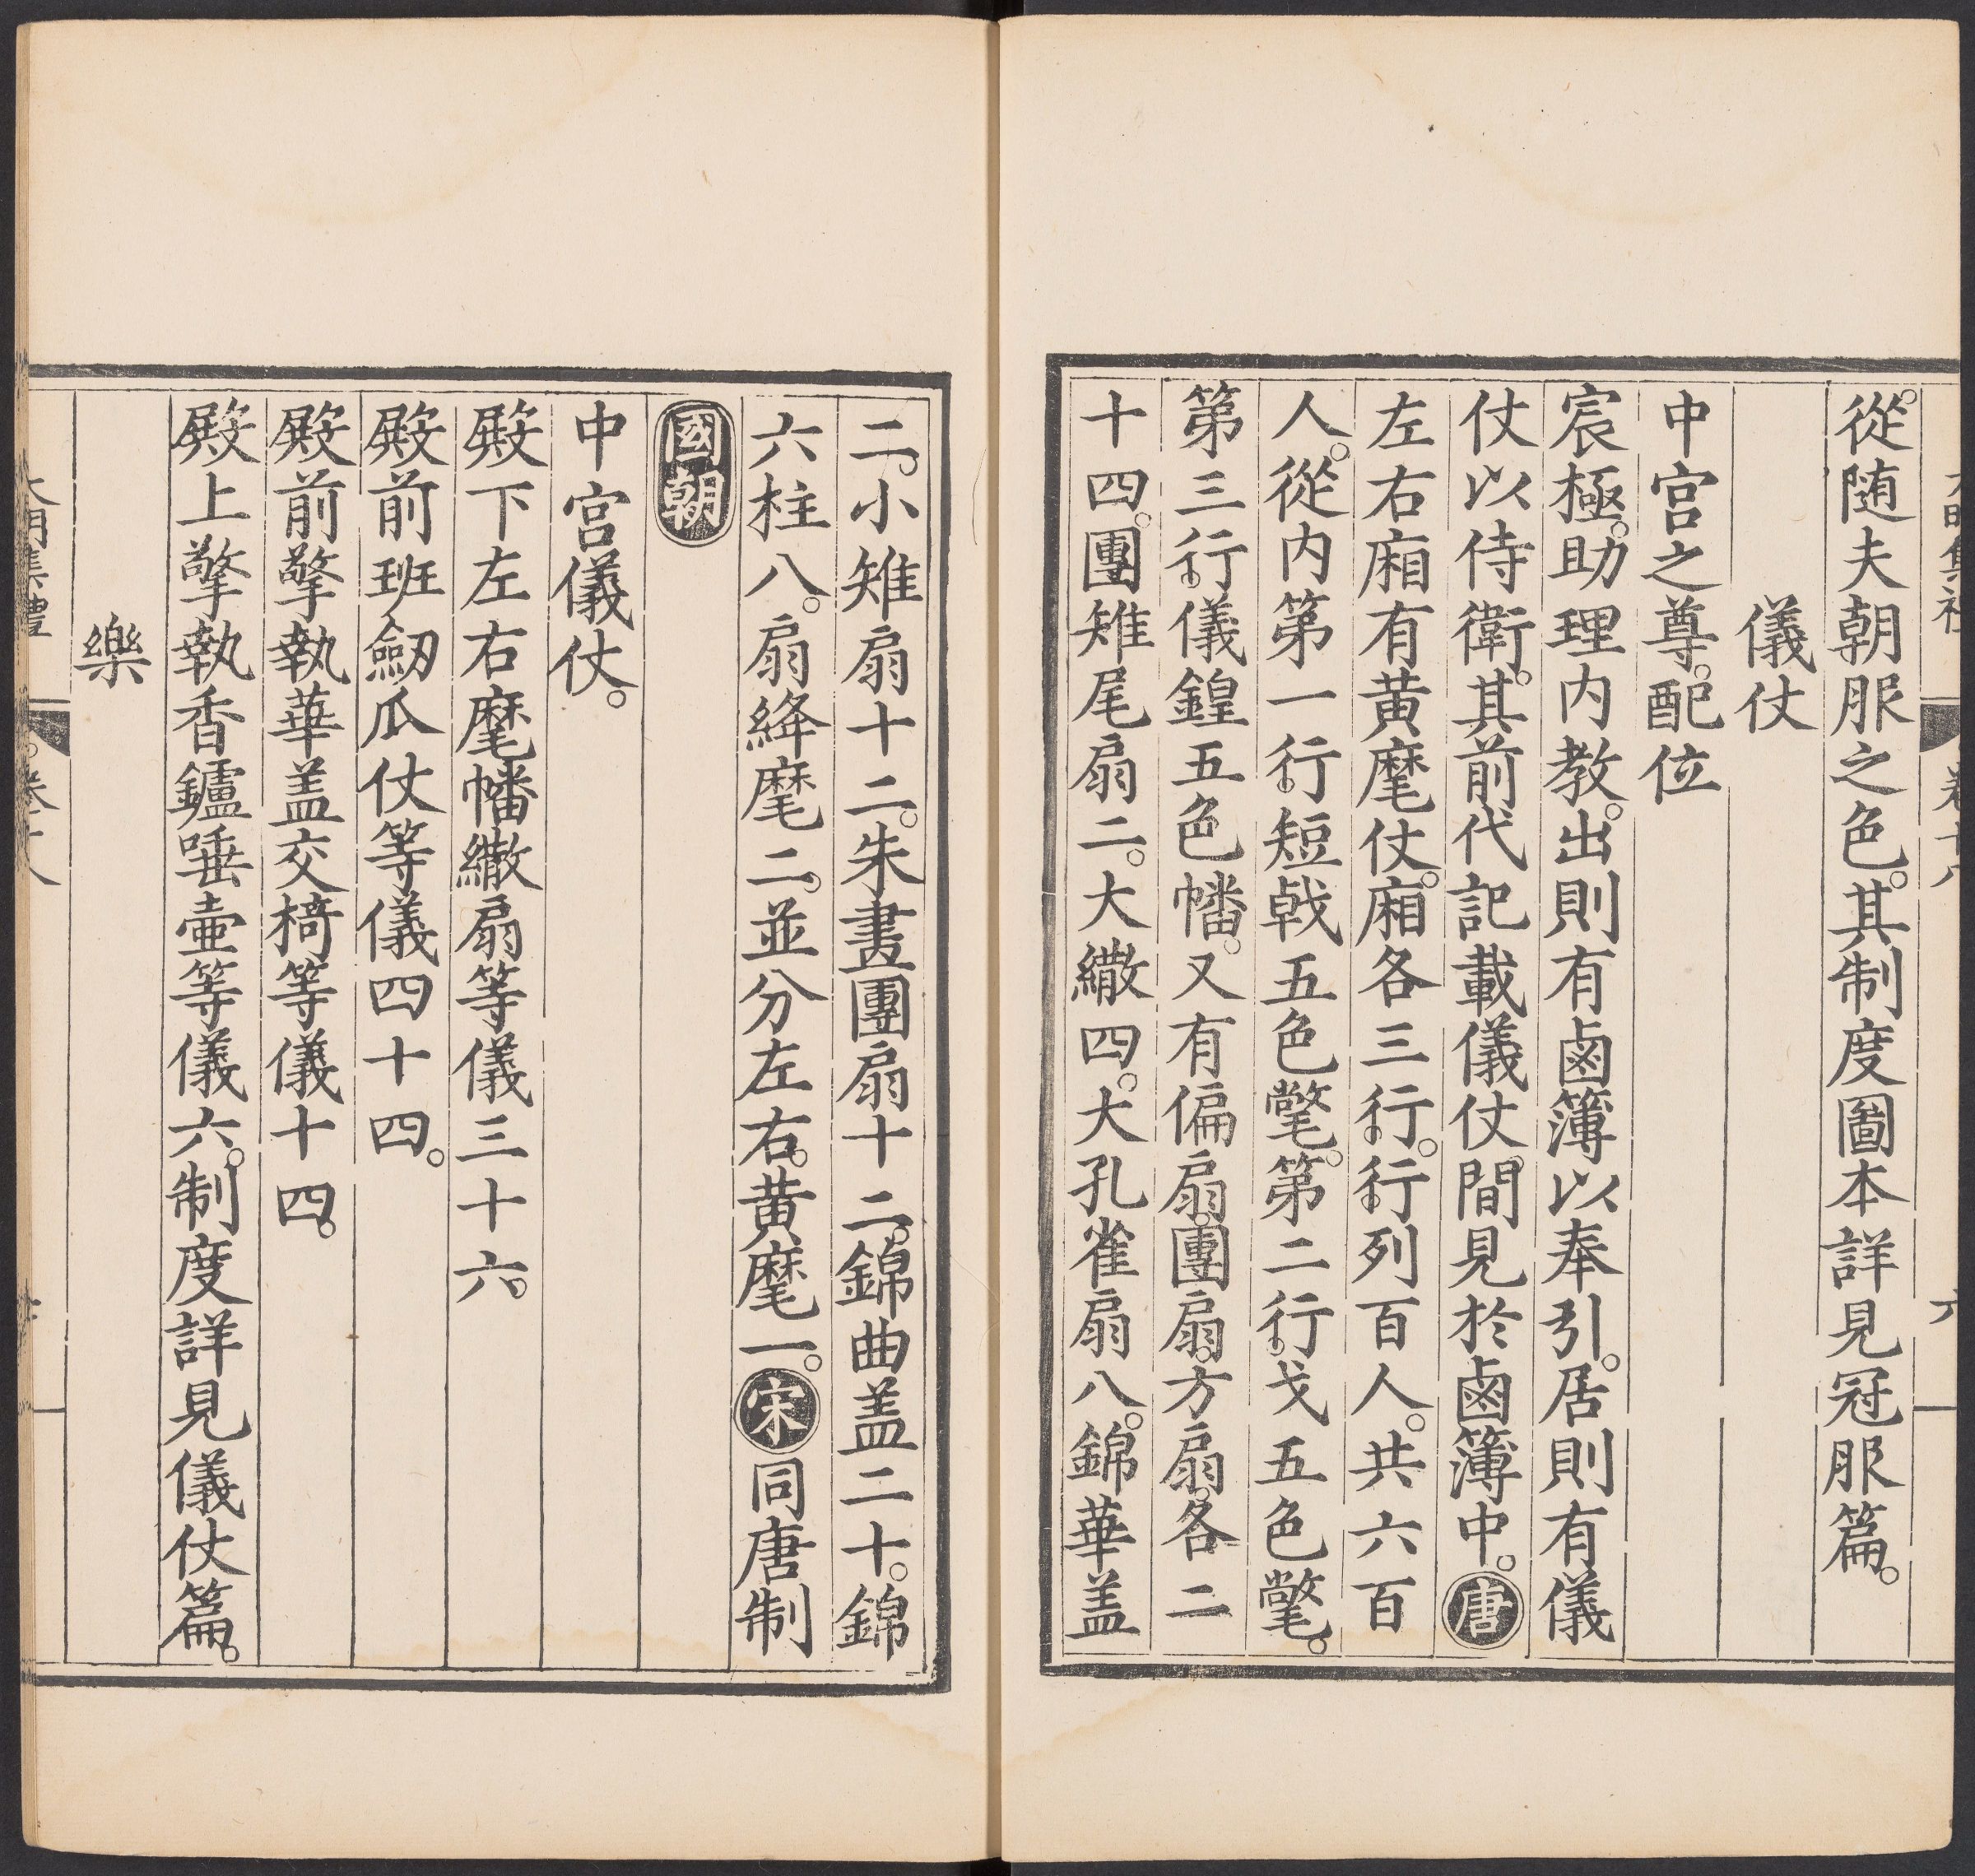 從随夫朝服之色。其制度圖本詳見冠服篇。
儀仗
中宮之尊。配位
宸極。助理内教。出則有鹵簿以奉引。居則有儀
仗以侍衛。其前代記載儀仗。間見於鹵簿中。唐
左右廂有黄麾仗。廂各三行。行列百人。共六百
人。從内第一行。短戟五色氅。第二行。戈五色氅。
第三行。儀鍠五色幡。又有偏扇。團扇。方扇。各二
十四。團雉尾扇二。大繖四。大孔雀扇八。錦華盖
二。小雉扇十二。朱畫團扇十二。錦曲盖二十。錦
六柱八。扇絳麾二。並分左右。黄麾一。宋同唐制
國朝
中宮儀仗。
殿下左右麾幡繖扇等儀三十六。
殿前班劒瓜仗等儀四十四。
殿前擎執華盖交椅等儀十四。
殿上擎執香鑪唾壷等儀六。制度詳見儀仗篇。
樂
大明集禮 卷十八